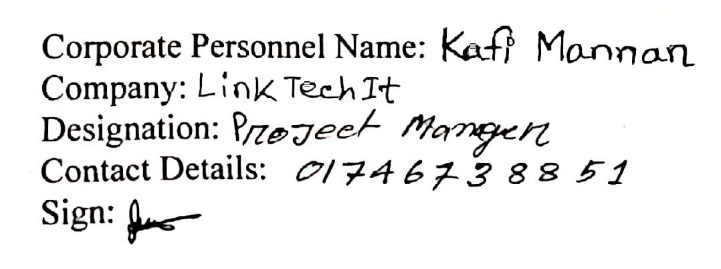 Corporate Personnel Name: Kafi Mannan
Company: Link Tech It
Designation: Project Manger
Contact Details: 01746738851
Sign: